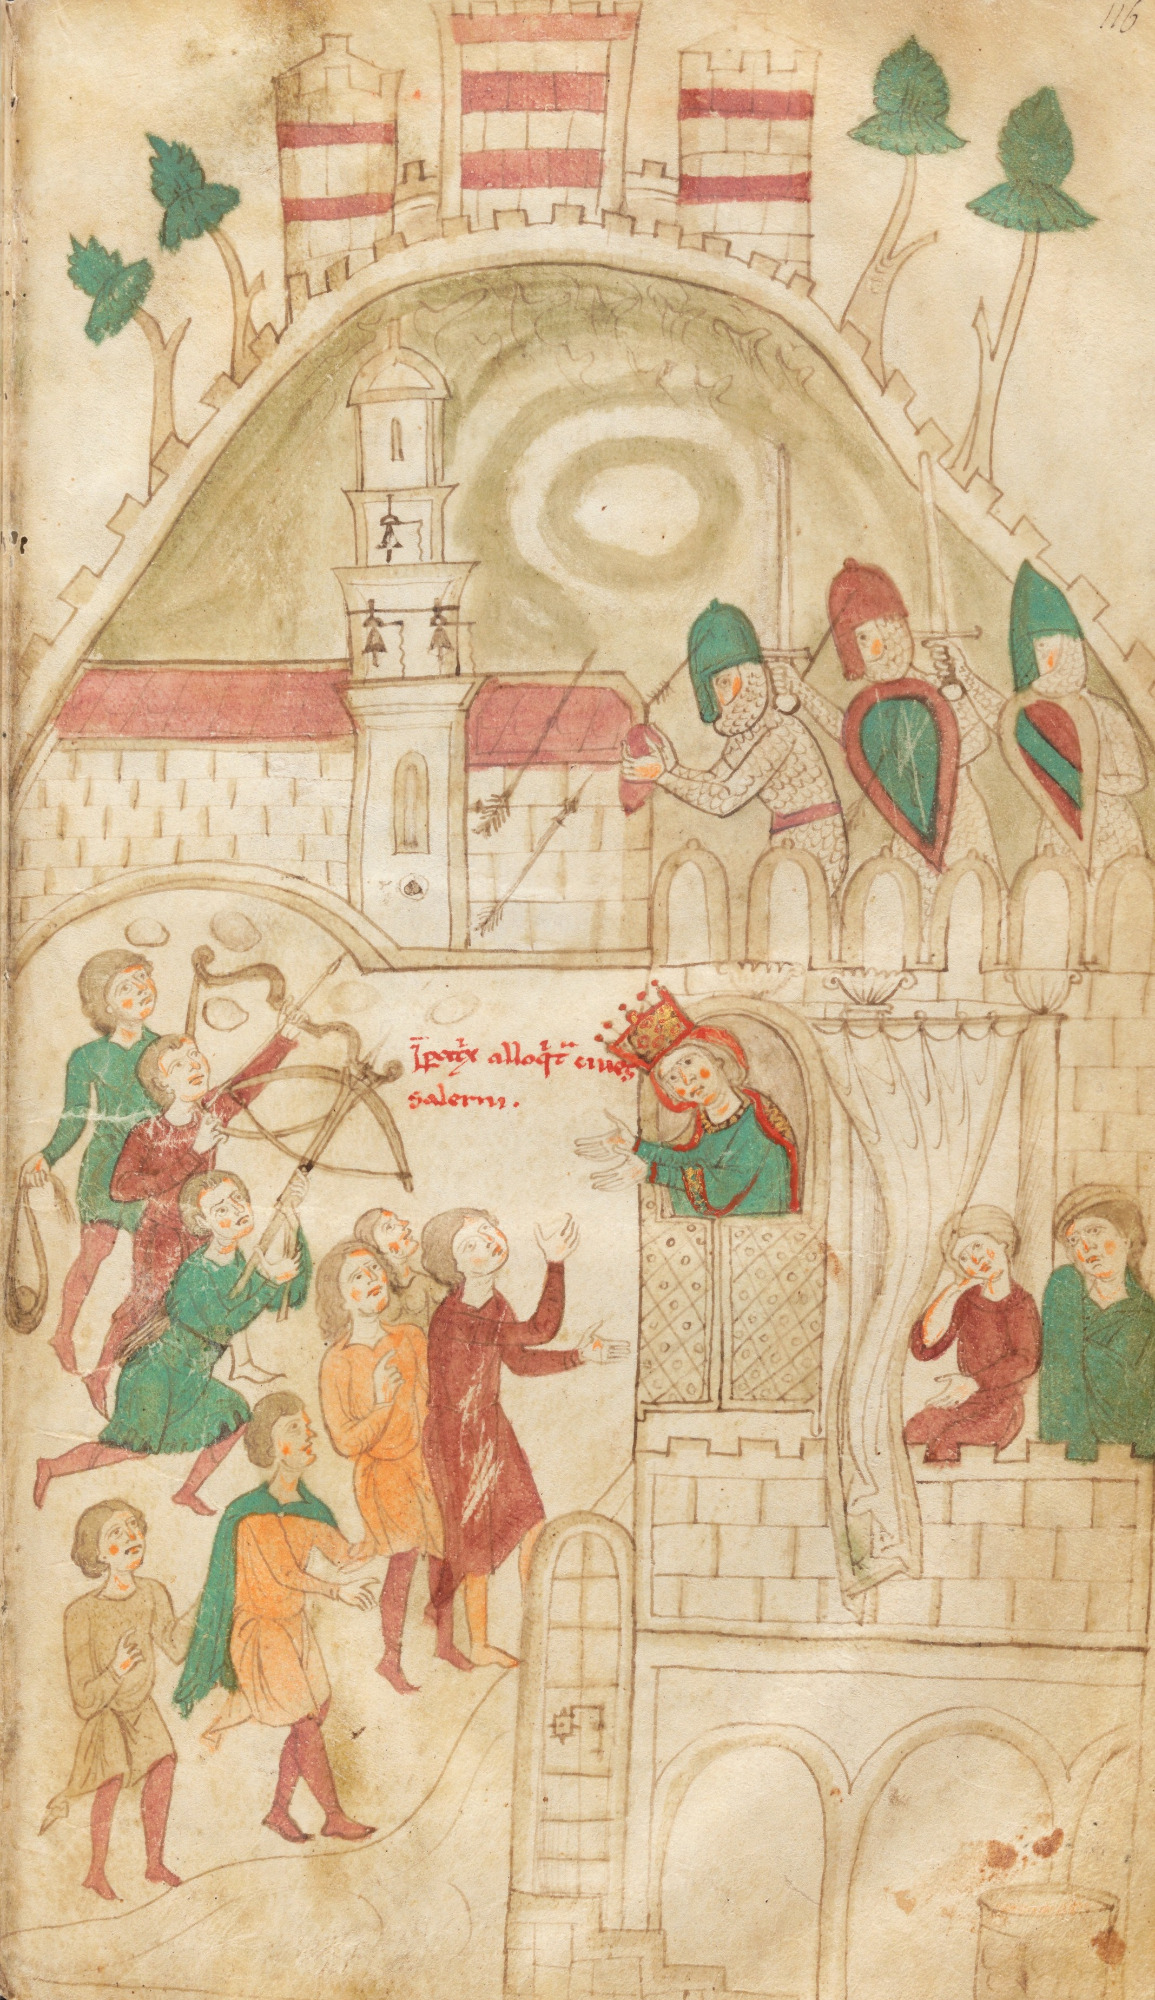 116
Ipatx alloqt ciues
salerni.